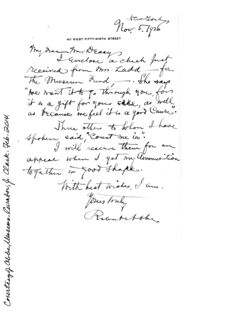 New York
Nov. 5, 1926
41 WEST FIFTY-NINTH STREET
My dear Mr. Deasy
I enclose a check just
received from Mrs. Ladd — for
the Museum Fund, — She says
"we want it to go through you, for
it is a gift for your sake, as well,
as because we feel it is a good Cause".
Three others to whom I have
spoken said "Count me in".
I will reserve them for an
appeal when I get my ammunition
together in good shape.
With best wishes, I am.
Yours truly,
Courtesy of Abbe Museum Curator, J. Clark Feb. 2014